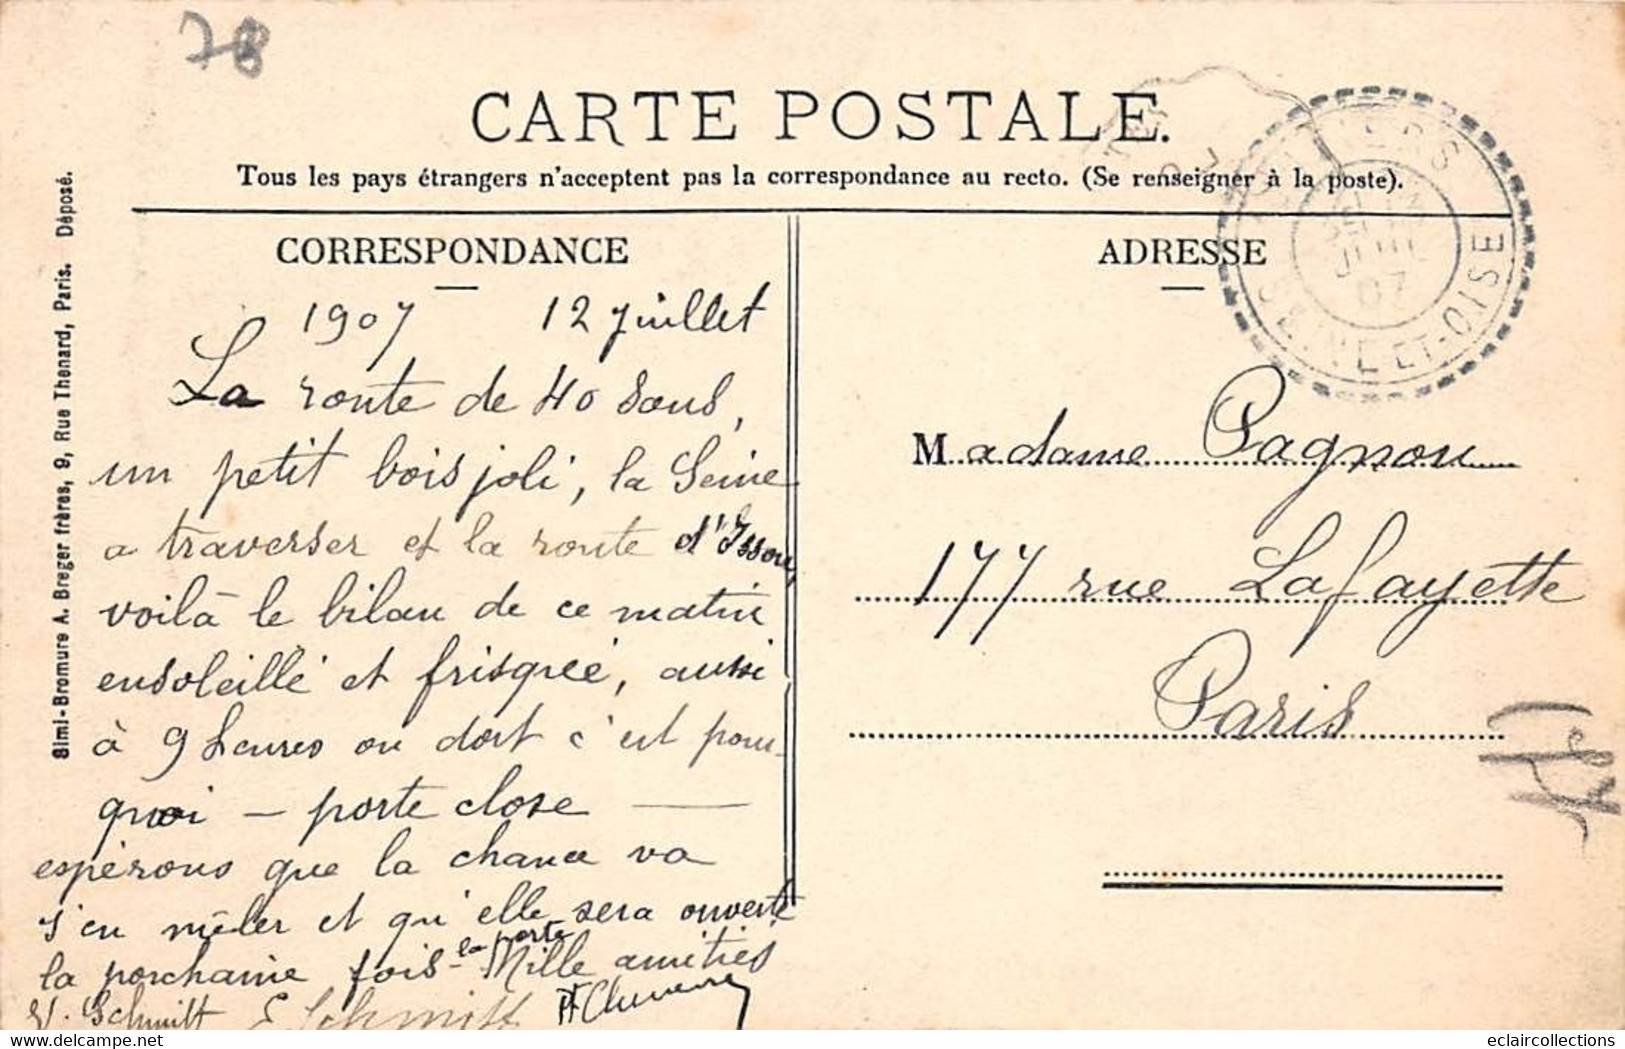 78
CARTE POSTALE.
Tous les pays étrangers n'acceptent pas la correspondance au recto. (Se renseigner à la poste).
Simi-Bromure A. Breger frères, 9, Rue Thenard, Paris. Déposé.
CORRESPONDANCE
1907 12 juillet
La route de 40 sous,
un petit bois joli, la Seine
a traverser et la route d'Issou,
voilà le bilan de ce matin
ensoleillé et frisqué, aussi
à 9 heures on dort c'est pour-
quoi - porte close -
espérons que la chance va
s'en mêler et qu'elle sera ouverte
la porte
la porchaine fois - Mille amitiés
V. Schmitt E Schmitt
ADRESSE
SEINE-ET-OISE
JUIL
07
Madame Pagnon
177 rue Lafayette
Paris
eclaircollections